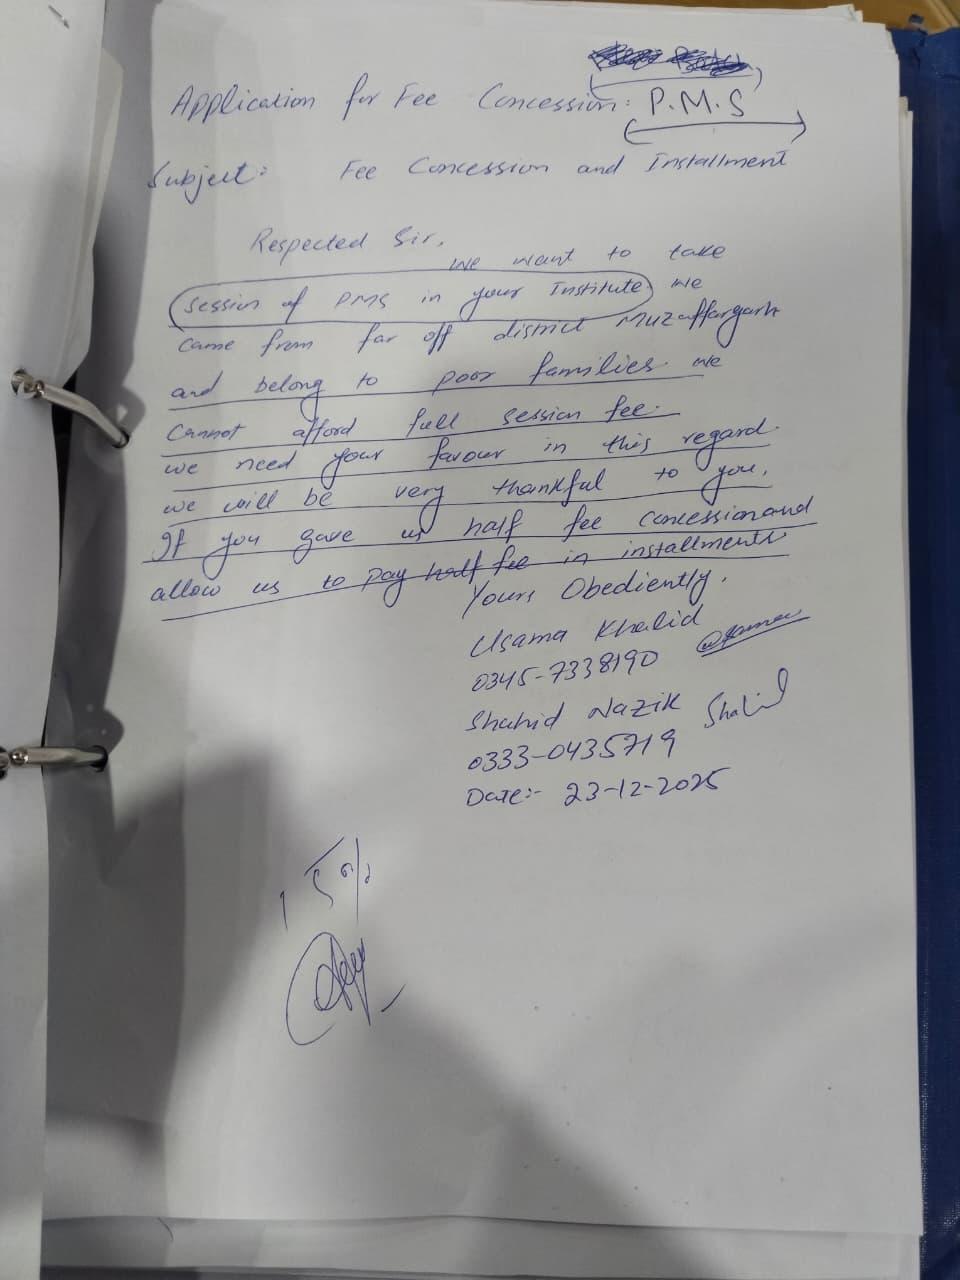 Application for Fee Concession: P.M.S
Subject: Fee Concession and Installment
Respected Sir,
we want to take
session of PMS in your Institute. we
came from far off district Muzaffargarh
and belong to poor families we
cannot afford full session fee.
we need your favour in this regard.
we will be very thankful to you.
If you gave us half fee concession and
allow us to pay half fee in installments
Yours Obediently.
Usama Khalid
0345-7338190
Shahid Nazik Shahid
0333-0435719
Date:- 23-12-2025
15%